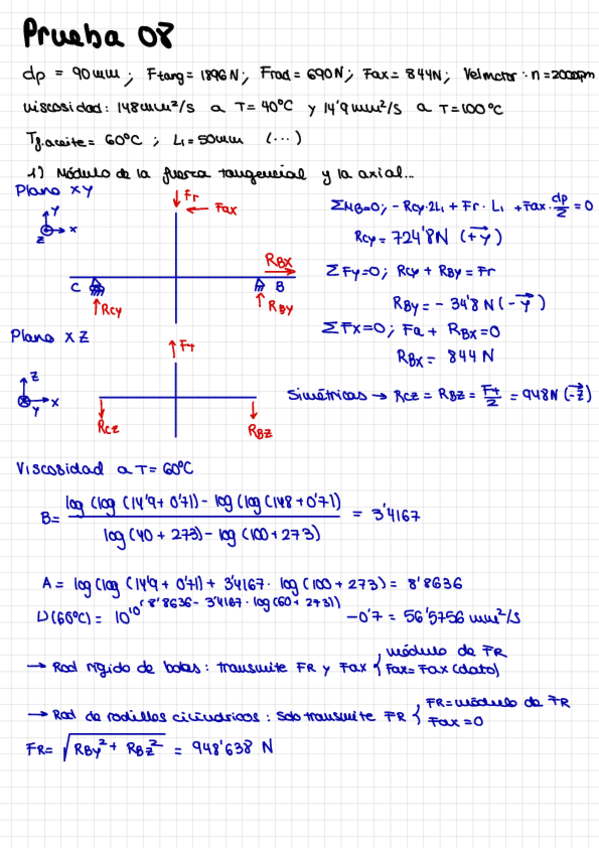 Prueba 08
dp = 90mm ; Ftang = 1896N ; Frad = 690N ; Fax = 844N ; Vel motor : n = 2000rpm
viscosidad : 148mm²/s a T = 40°C y 14'9 mm²/s a T = 100°C
Tf.aceite = 60°C ; L₁ = 50mm (...)
1) Módulo de la fuerza tangencial y la axial...
Plano XY
Fr
Fax
Y
X
Z
ΣMB=0; -Rcy·2L₁ + Fr·L₁ + Fax·dp/2 = 0
Rcy = 724'8N (+Y)
RBX
C
B
Rcy
RBY
ΣFy=0; Rcy + RBy = Fr
RBy = -34'8 N (-Y)
ΣFx=0; Fa + RBX = 0
RBX = 844 N
Plano XZ
Ft
Z
X
Y
Rcz
RBZ
Simétricas → Rcz = RBz = Ft/2 = 948N (-Z)
Viscosidad a T = 60°C
B = log(log(14'9+0'71) - log(log(148+0'71) / log(40+273) - log(100+273) = 3'4167
A = log(log(14'9+0'71) + 3'4167 · log(100+273) = 8'8636
10^10^(8'8636 - 3'4167 · log(60+273)) - 0'7 = 56'5756 mm²/s
→ Rod rígido de bolas : transmite FR y Fax { módulo de FR
Fax = Fax (dato)
→ Rod de rodillos cilíndricos : Solo transmite FR { FR = módulo de FR
Fax = 0
FR = √RBy² + RBz² = 948'638 N